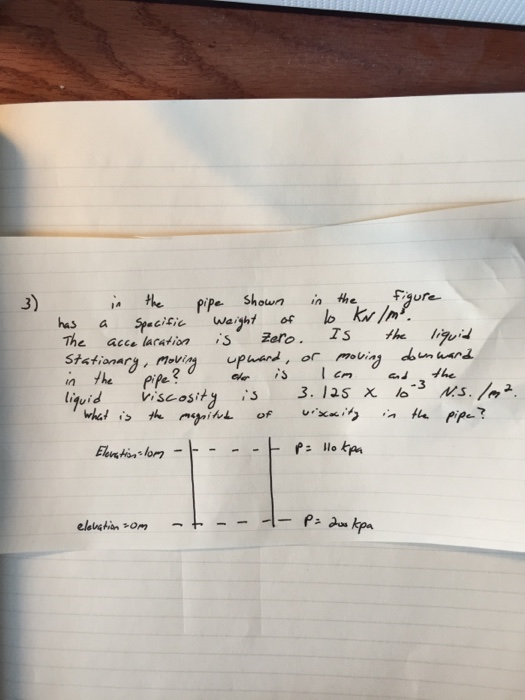 3) in the pipe shown in the figure
has a specific weight of 10 KN/m³.
The accelaration is zero. Is the liquid
Stationary, moving upward, or moving downward
in the pipe? is 1 cm and the
liquid viscosity is 3.125 x 10⁻³ N.S./m².
What is the magnitude of in the pipe?
Elevation=10m P= 110 kpa
elevation=0m P= 200 kpa